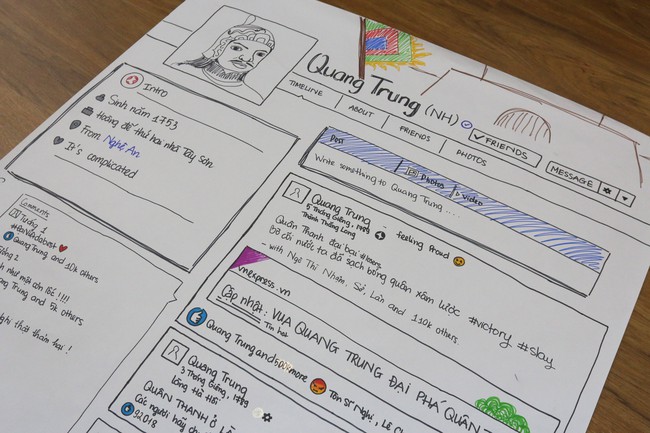 Quang Trung (NH)
TIMELINE ABOUT FRIENDS PHOTOS
FRIENDS
MESSAGE
Intro
Sinh năm 1753
Hoàng đế thứ hai nhà Tây Sơn
From Nghệ An
It's complicated
Post Photos Video
Write something to Quang Trung ....
Quang Trung - feeling proud
5 Tháng Giêng, 1789
Thành Thăng Long
Quân Thanh đại bại
bờ cõi nước ta đã sạch bóng quân xâm lược #victory #slay
- with Ngô Thì Nhậm, Sở, Lân and 110k others
vnexpress.vn
Cập nhật: VUA QUANG TRUNG ĐẠI PHÁ QUÂN
Tin hot
Quang Trung and 500k more Tôn Sĩ Nghị, Lê
Quang Trung
3 Tháng Giêng, 1789
Làng Hà Hồi
QUÂN THANH Ở
Các người hãy
92018
Comments
Tướng 1
Quang Trung and 10k others
2
như một cơn lốc !!!!
Trung and 5k others
Nghị thật thảm hại !